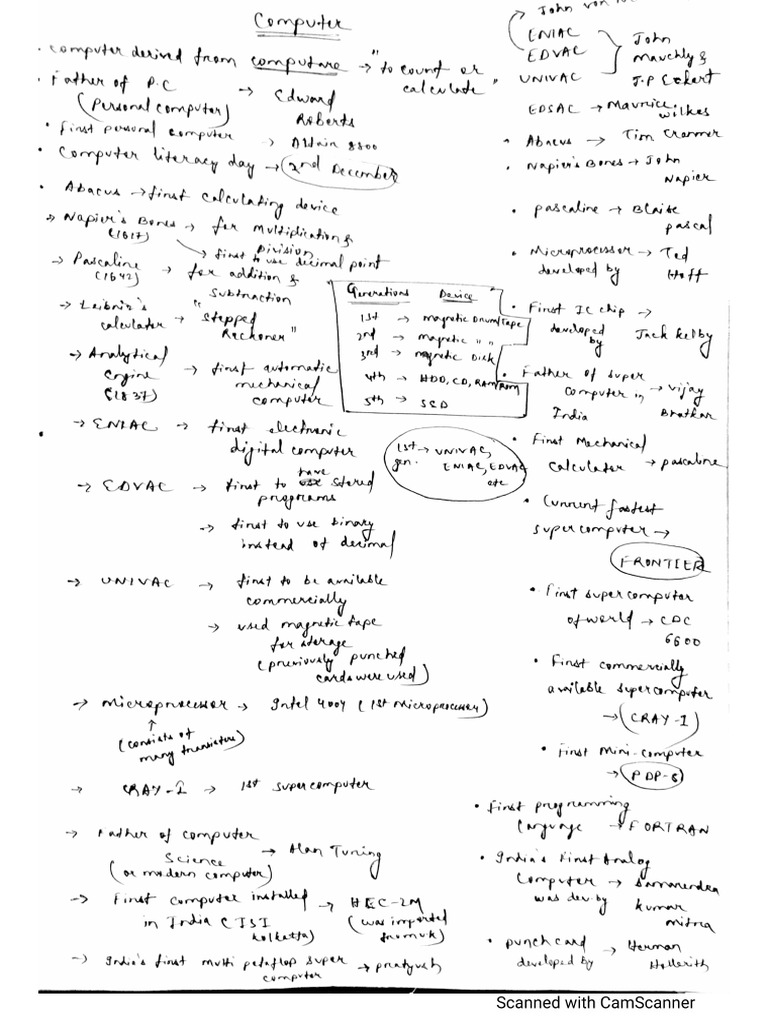 Computer
• Computer derived from computare → "to count or
calculate"
• Father of P.C → Edward
(Personal computer) Roberts
• First personal computer → Altair 8800
• Computer literacy day → 2nd December
• Abacus → first calculating device
→ Napier's Bones → for multiplication &
(1617) Division
→ first to use decimal point
→ Pascaline → for addition &
(1642) Subtraction
→ Leibniz's
calculater → "Stepped
Reckoner"
→ Analytical
Engine → first automatic
(1837) mechanical
computer
→ ENIAC → first electronic
digital computer
→ EDVAC → first to have stored
programs
→ first to use binary
instead of decimal
→ UNIVAC → first to be available
commercially
→ used magnetic tape
for storage
(previously punched
cards were used)
→ Microprocessor → Intel 4004 (1st microprocessor)
↑
(consists of
many transistors)
→ CRAY-1 → 1st supercomputer
→ Father of computer
Science → Alan Turing
(or modern computer)
→ First computer installed → HEC-2M
in India (ISI (was imported
Kolkatta) from UK)
→ India's first multi petaflop super
computer → pratyush
Generations Device
1st → magnetic Drum/Tape
2nd → magnetic " "
3rd → magnetic Disk
4th → HDD, CD, RAM/ROM
5th → SCD
1st → UNIVAC,
gen. ENIAC, EDVAC
etc
→ John von
ENIAC
EDVAC John
UNIVAC Mauchly &
J.P Eckert
EDSAC → Maurice
Wilkes
• Abacus → Tim Cranmer
• Napier's Bones → John
Napier
• pascaline → Blaise
pascal
• Microprocessor → Ted
developed by Hoff
• First IC chip →
developed
by Jack Kelby
• Father of super
computer in → vijay
India Bhatkar
• First Mechanical
calculater → pascaline
• Current fastest
supercomputer →
FRONTIER
• First supercomputer
of world → CDC
6600
• First commercially
available supercomputer
→ CRAY-1
• First Mini-computer
→ PDP-8
• First programming
language → FORTRAN
• India's First Analog
Computer → Samarendra
was dev. by kumar
mitra
• punch card → Herman
developed by Hollerith
Scanned with CamScanner